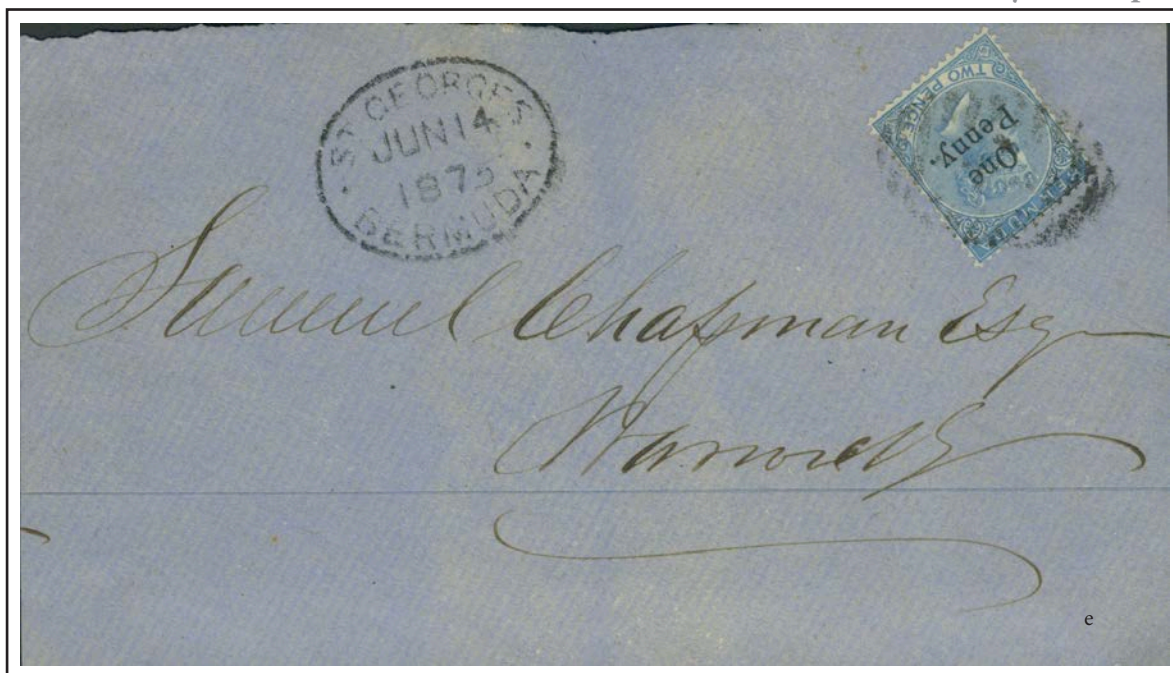 ST GEORGES
JUN 14
1875
BERMUDA
TWO PENCE
One
Penny.
BERMUDA
Samuel Chapman Esq
Warwick
e